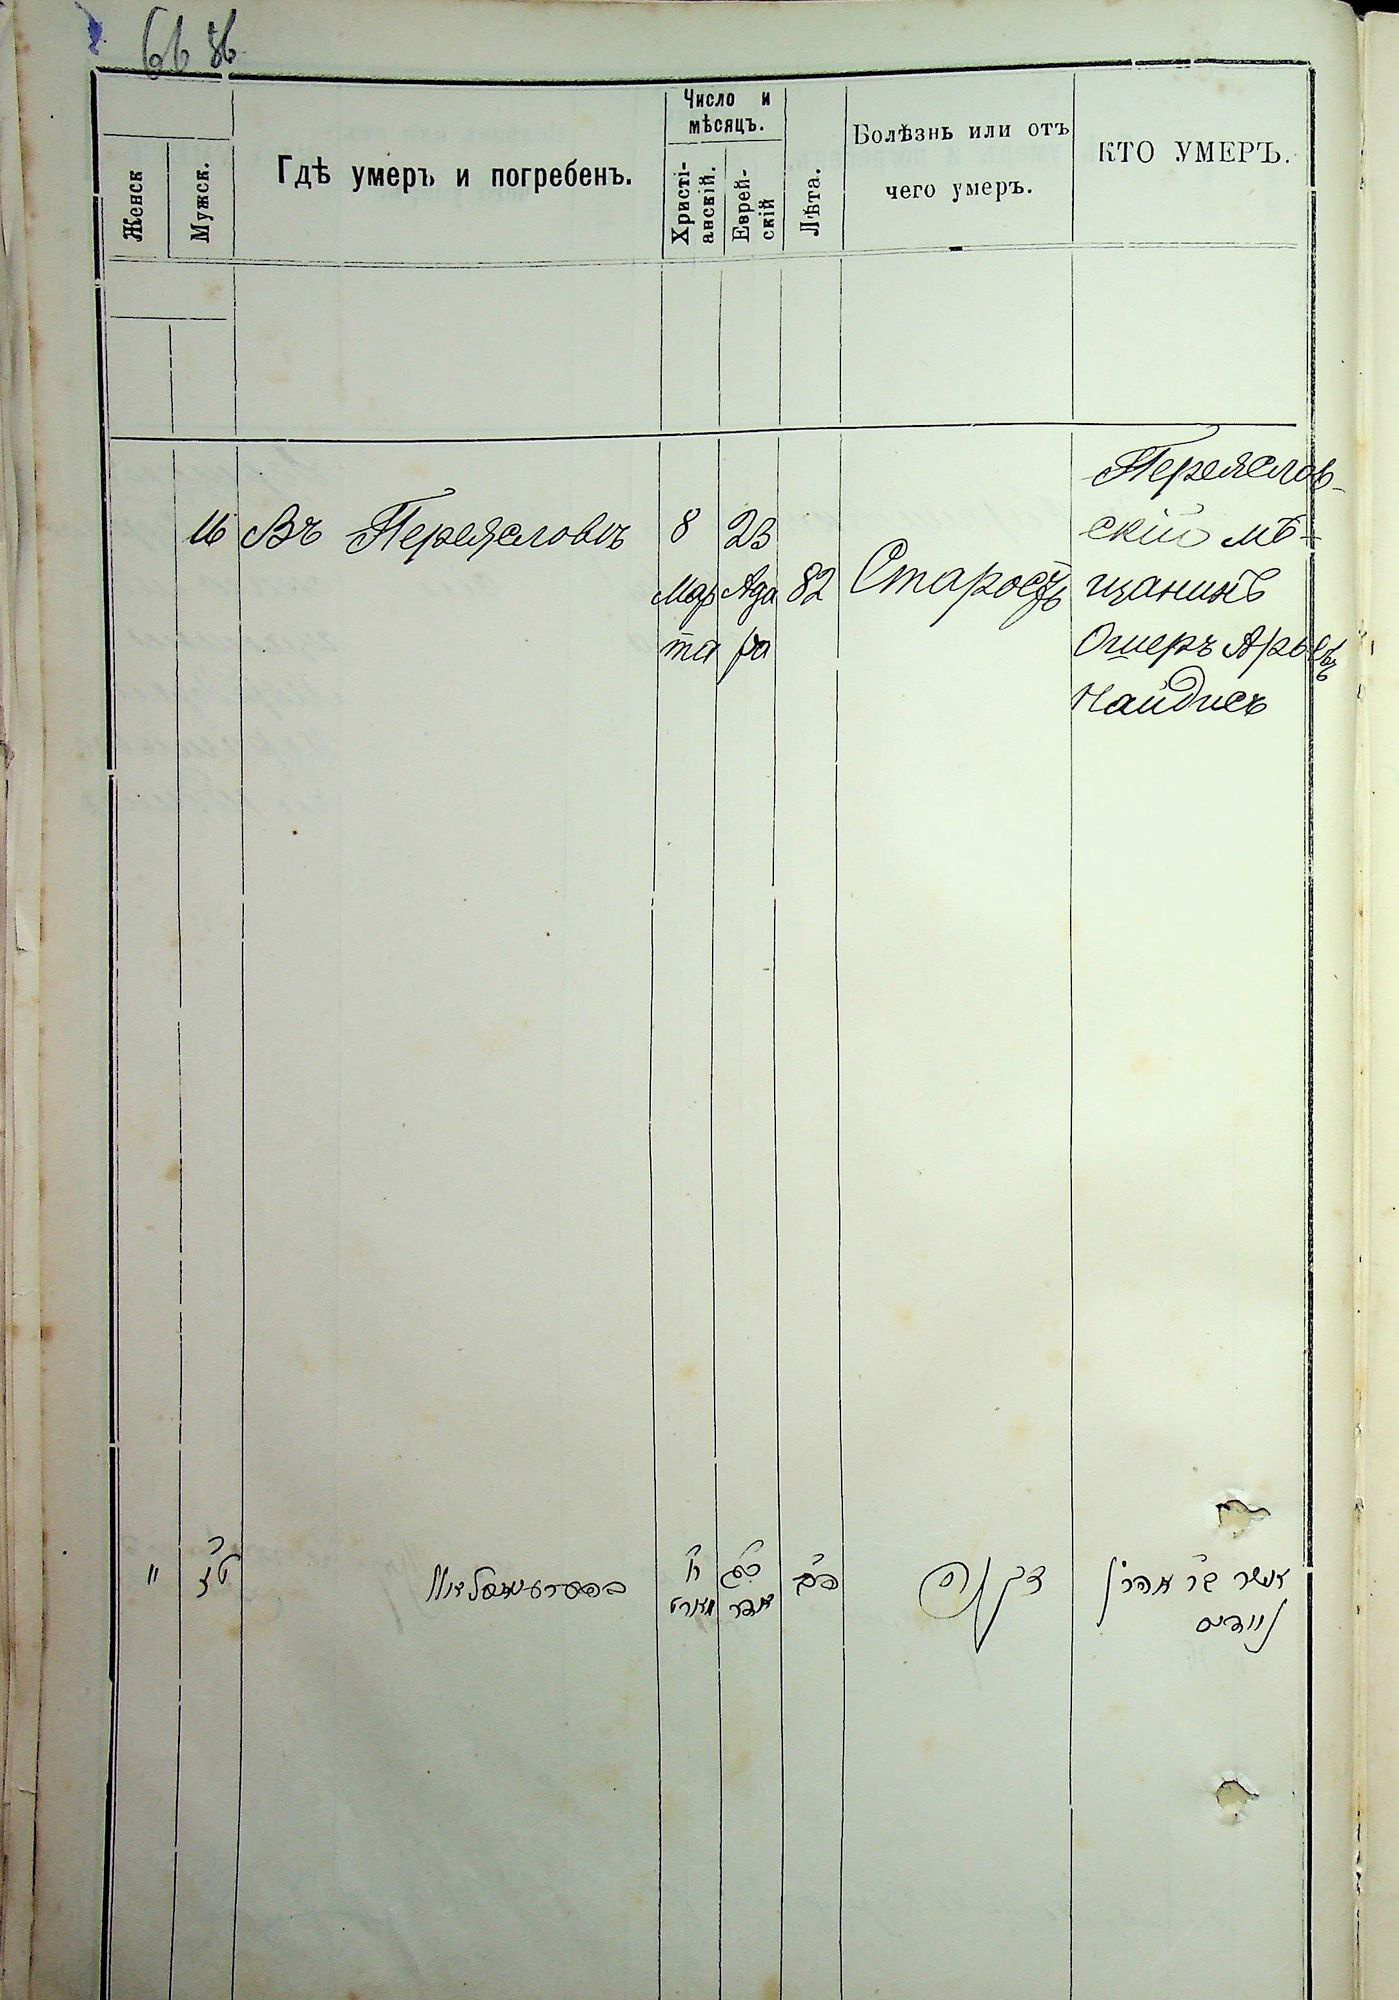 66 86
Женск
Мужск.
Гдѣ умеръ и погребенъ.
Число и
мѣсяцъ.
Христі-
анскій.
Еврей-
скій
Лѣта.
Болѣзнь или отъ
чего умеръ.
КТО УМЕРЪ.
16
Въ Переясловѣ
8
Мар
та
23
Ада
ра
82
Старость
Переяслов-
скій мѣ-
щанинъ
Ошеръ Арьевъ
Найдисъ
"
טז
ח
מארט
כג
אדר
פב
זקנה
אשר בר אהרן
ניידיס